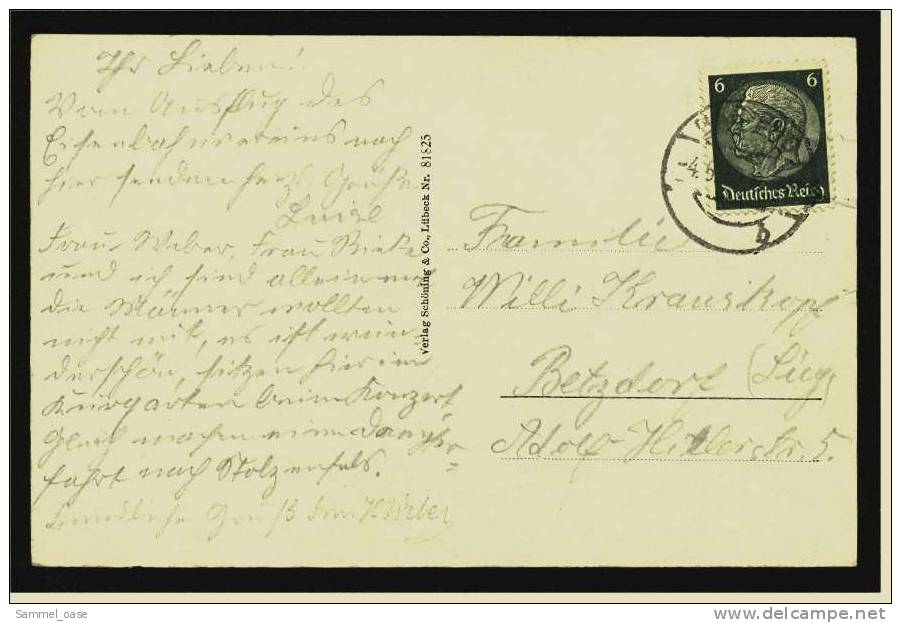 Ihr Lieben!
Vom Ausflug des
Eisenbahnvereins nach
hier senden herzl. Grüße
Luise
Frau Weber, Frau Rieke
und ich sind allein mit
die Männer wollten
nicht mit, es ist wun-
derschön, sitzen hier im
Kurgarten beim Konzert
Gleich machen eine Dampfer-
fahrt nach Stolzenfels.
Freundliche Grüß Frau Weber
Verlag Schöning & Co., Lübeck Nr. 81825
6 6
Deutsches Reich
-4.
b
Familie
Willi Krauskopf
Betzdorf (Sieg)
Adolf-Hitler-Str. 5.
Sammel_oase
www.delcampe.net